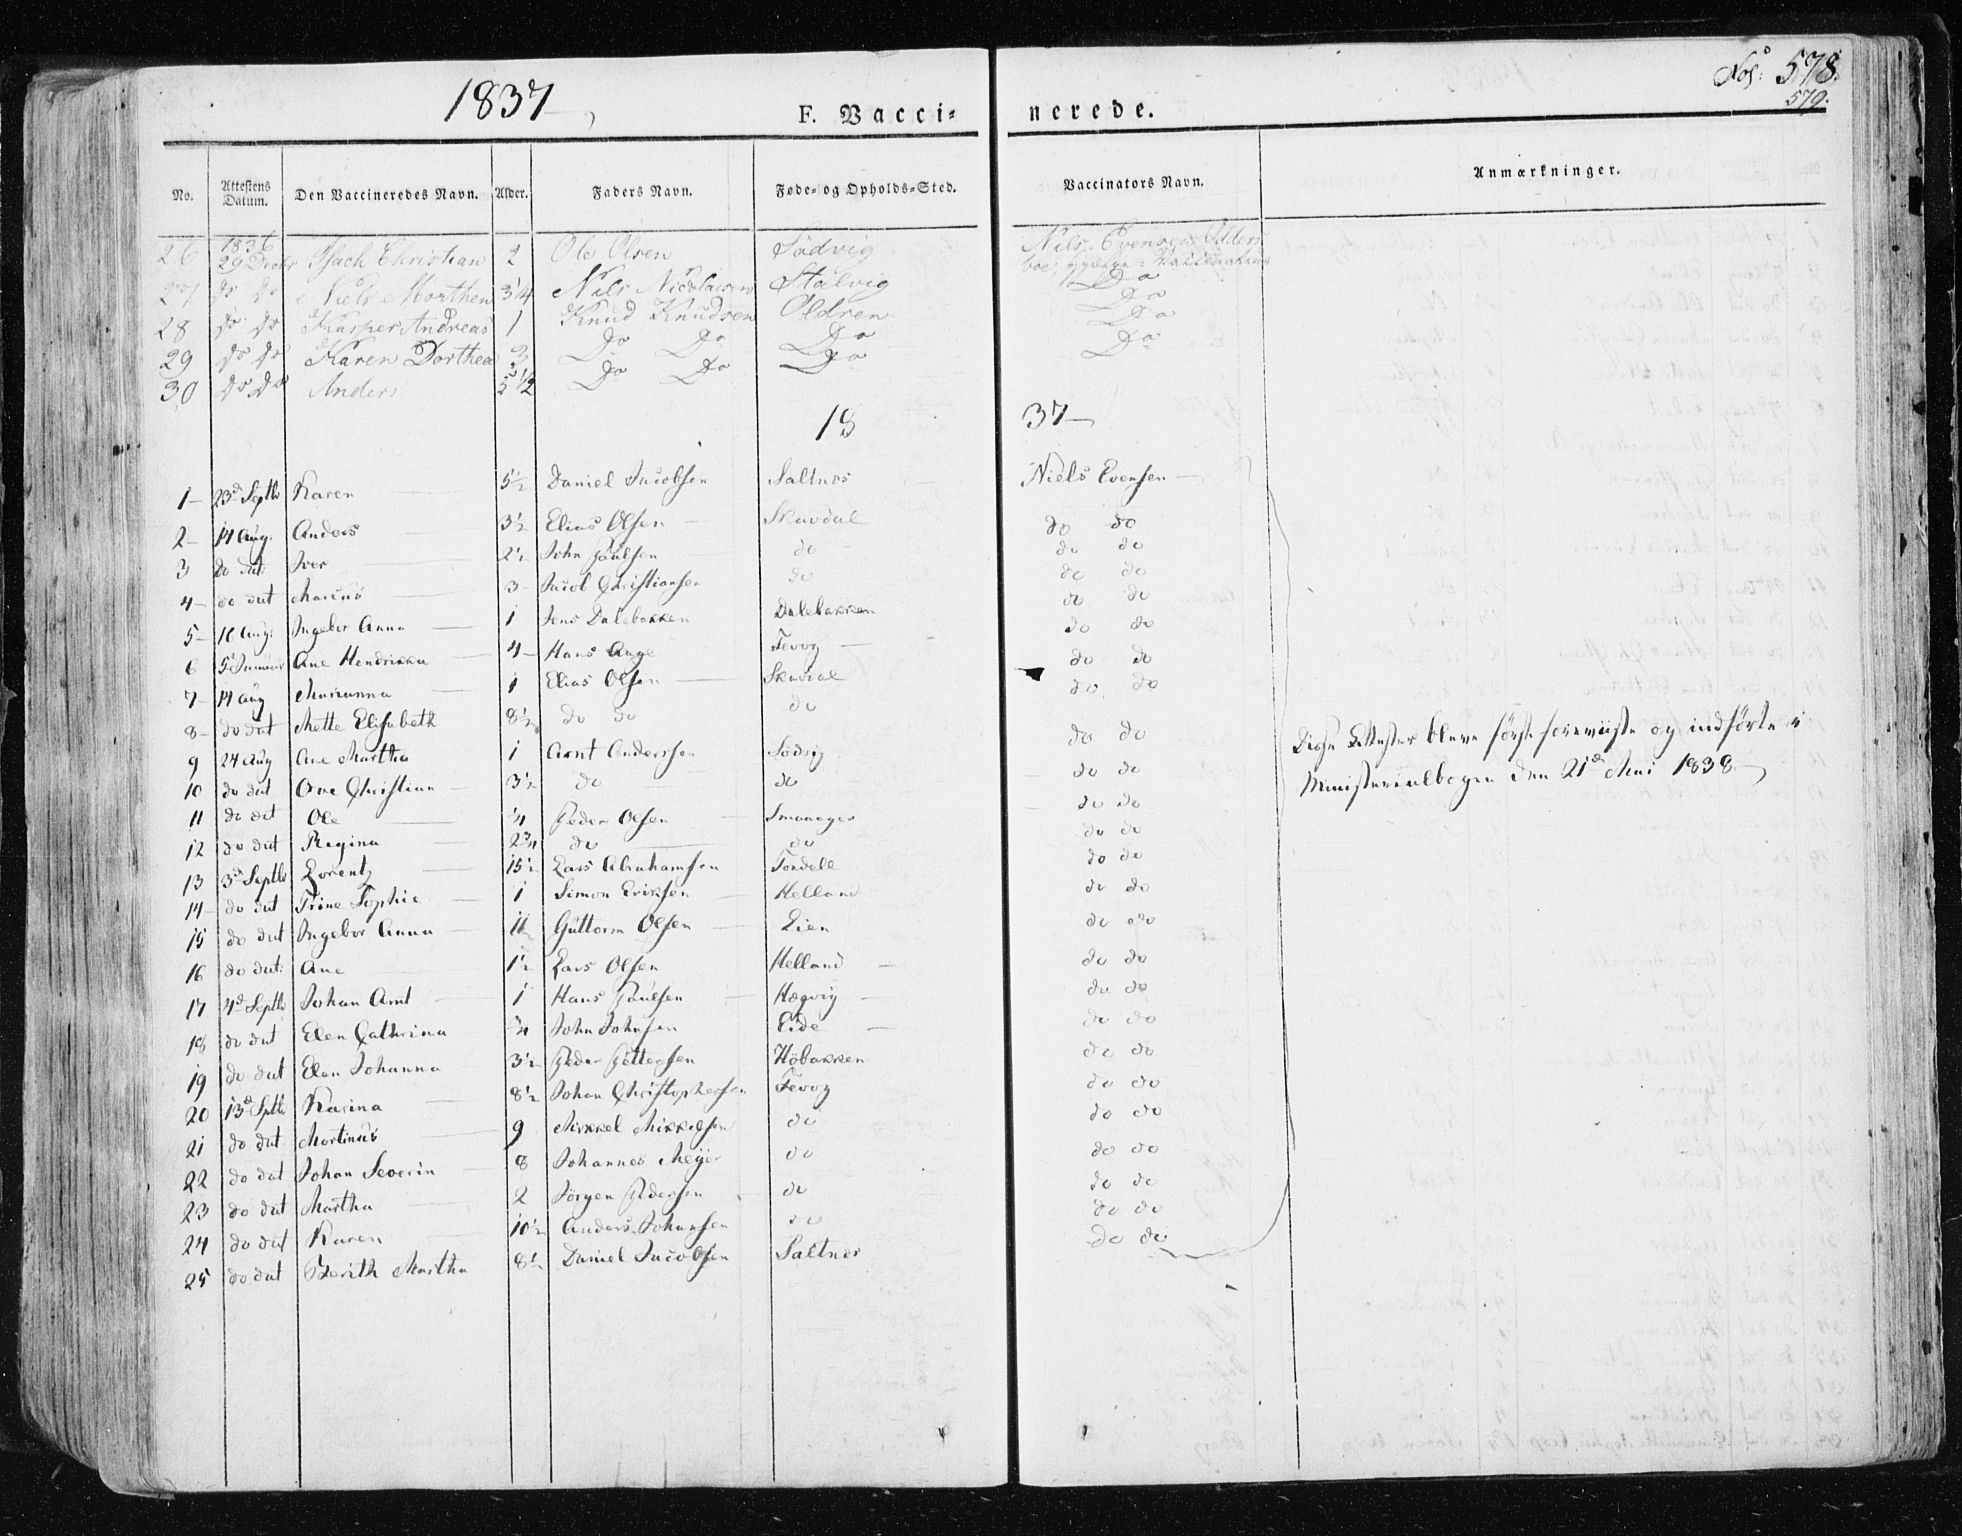 1837
Fol: 578.
579.
F. Vaccinerede.
No. | Attestens Datum. | Den Vaccineredes Navn. | Alder. | Faders Navn. | Føde- og Opholds-Sted. | Vaccinators Navn. | Anmærkninger.
26 | 1836 29 Decbr | Isach Christian | 2 | Ole Olsen | Södvig | Nils Evensen
27 | do do | Niels Morthen | 3/4 | Nils Nicolaisen | Stalvig | Do
28 | do do | Kasper Andreas | 1 | Knud Knudsen | Oldren | Do
29 | do do | Karen Dorthea | 3 | Do Do | Do | Do
30 | do do | Anders | 5 1/2 | Do Do | Do | Do
1837
1 | 23d Septb | Karen | 5 1/2 | Daniel Jacobsen | Saltnes | Niels Evensen
2 | 14 Aug. | Anders | 3 1/2 | Elias Olsen | Skavdal | do do
3 | do dat: | Iver | 2 1/2 | John Paulsen | do | do do
4 | do dat | Marcus | 3 | Jacob Christiansen | do | do do
5 | 16 Aug: | Ingebor Anna | 1 | Jens Dalebakken | Dalebakken | do do
6 | 5 Januar | Ane Hendrikka | 4 | Hans Aage | Fevog | do do
7 | 14 Aug | Marianna | 1 | Elias Olsen | Skavdal | do do
8 | do dat | Mette Elisabeth | 8 1/2 | do do | do | do do
9 | 24 Aug | Ane Martha | 1 | Arnt Anderssen | Södvig | do do
10 | do dat | Ove Christian | 3 1/2 | do | do | do do
11 | do dat | Ole | 1/4 | Peder Olsen | Smaaages | do do
12 | do dat | Regina | 2 3/4 | do | do | do do
13 | 3d Septb | Lorentz | 15 1/2 | Lars Abrahamsen | Tondell | do do
14 | do dat | Trine Sophie | 1 | Simon Eriksen | Helland | do do
15 | do dat | Ingebor Anna | 11 | Guttorm Olsen | Lien | do do
16 | do dat: | Ane | 1 1/2 | Lars Olsen | Helland | do do
17 | 4d Septb | Johan Arnt | 1 | Hans Paulsen | Hægvig | do do
18 | do dat | Elen Cathrina | 3/4 | John Johnsen | Eide | do do
19 | do dat | Elen Johanna | 3 1/2 | Peder Pettersen | Höbakken | do do
20 | 13d Septb | Karina | 8 1/2 | Johan Christophersen | Fevog | do do
21 | do dat | Martinus | 9 | Mikkel Mikkelsen | do | do do
22 | do dat | Johan Severin | 8 | Johannes Meyer | do | do do
23 | do dat | Martha | 2 | Jörgen Pedersen | do | do do
24 | do dat | Karen | 10 1/2 | Anders Johansen | do | do do
25 | do dat | Berith Martha | 8 1/2 | Daniel Jacobsen | Saltnes | do do
Disse Attester bleve först foreviiste og indförte i
Ministerialbogen den 21de Mai 1838